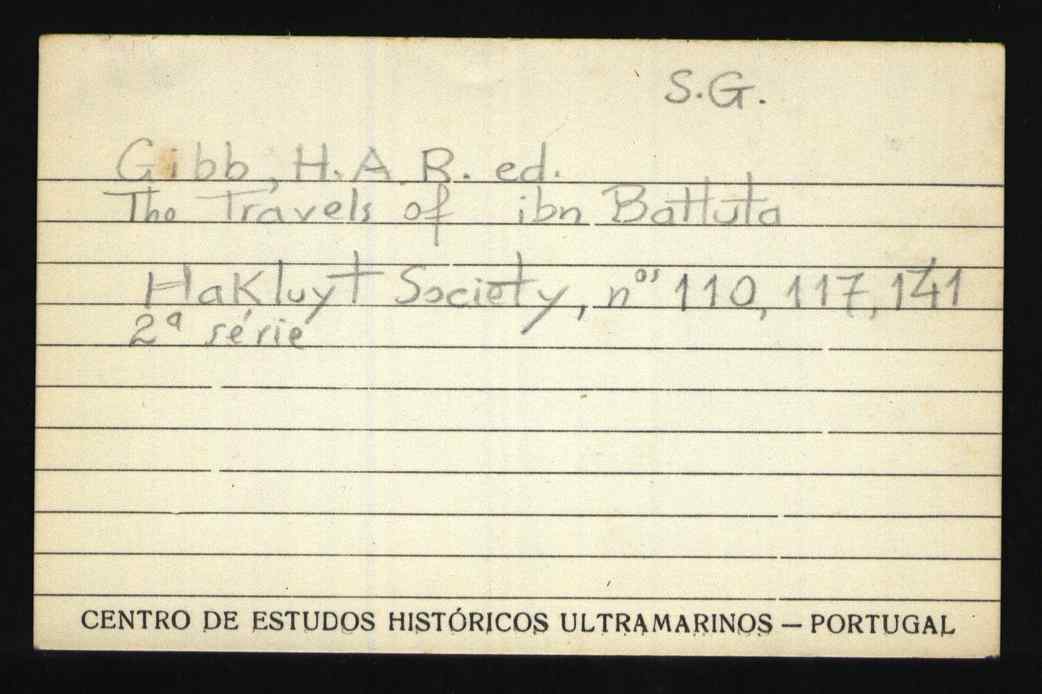 S.G.
Gibb, H. A. R. ed.
The Travels of ibn Battuta
Hakluyt Society, nºs 110, 117, 141
2ª série
CENTRO DE ESTUDOS HISTÓRICOS ULTRAMARINOS — PORTUGAL